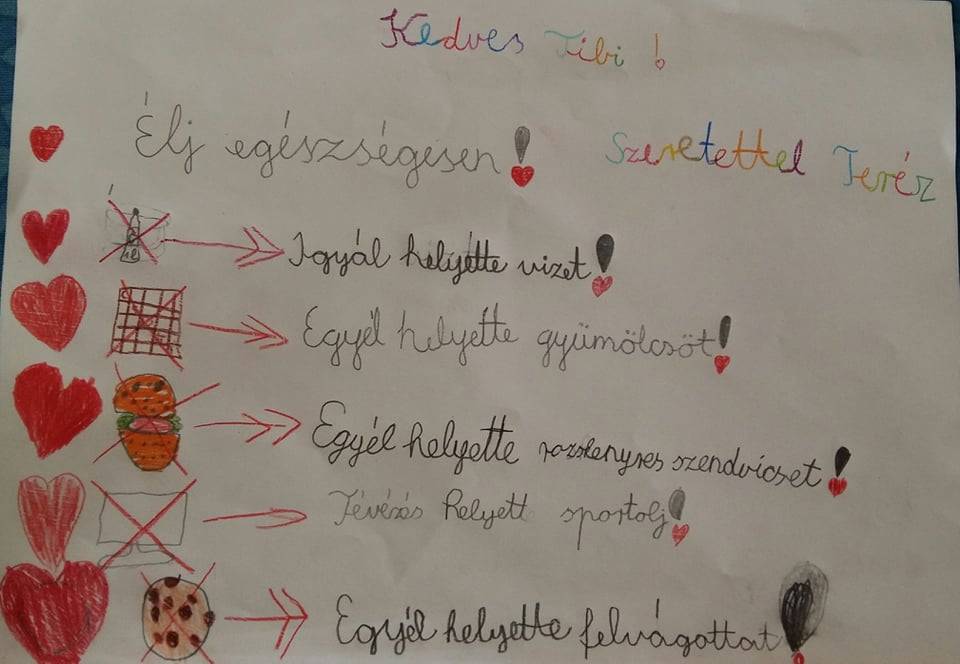 Kedves Tibi!
Élj egészségesen!
Szeretettel Teréz
Igyál helyette vizet!
Egyél helyette gyümölcsöt!
Egyél helyette rozskenyres szendvicset!
Tévézés helyett sportolj!
Egyél helyette felvágottat!